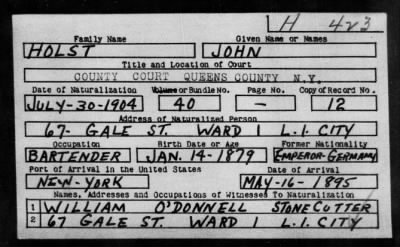 H 423
Family Name Given Name or Names
HOLST JOHN
Title and Location of Court
COUNTY COURT QUEENS COUNTY N.Y.
Date of Naturalization Volume or Bundle No. Page No. Copy of Record No.
JULY-30-1904 40 — 12
Address of Naturalized Person
67- GALE ST. WARD 1 L.I. CITY
Occupation Birth Date or Age Former Nationality
BARTENDER JAN. 14-1879 EMPEROR-GERMANY
Port of Arrival in the United States Date of Arrival
NEW-YORK MAY-16-1895
Names, Addresses and Occupations of Witnesses To Naturalization
1 WILLIAM O'DONNELL STONE CUTTER
2 67 GALE ST. WARD 1 L.I. CITY